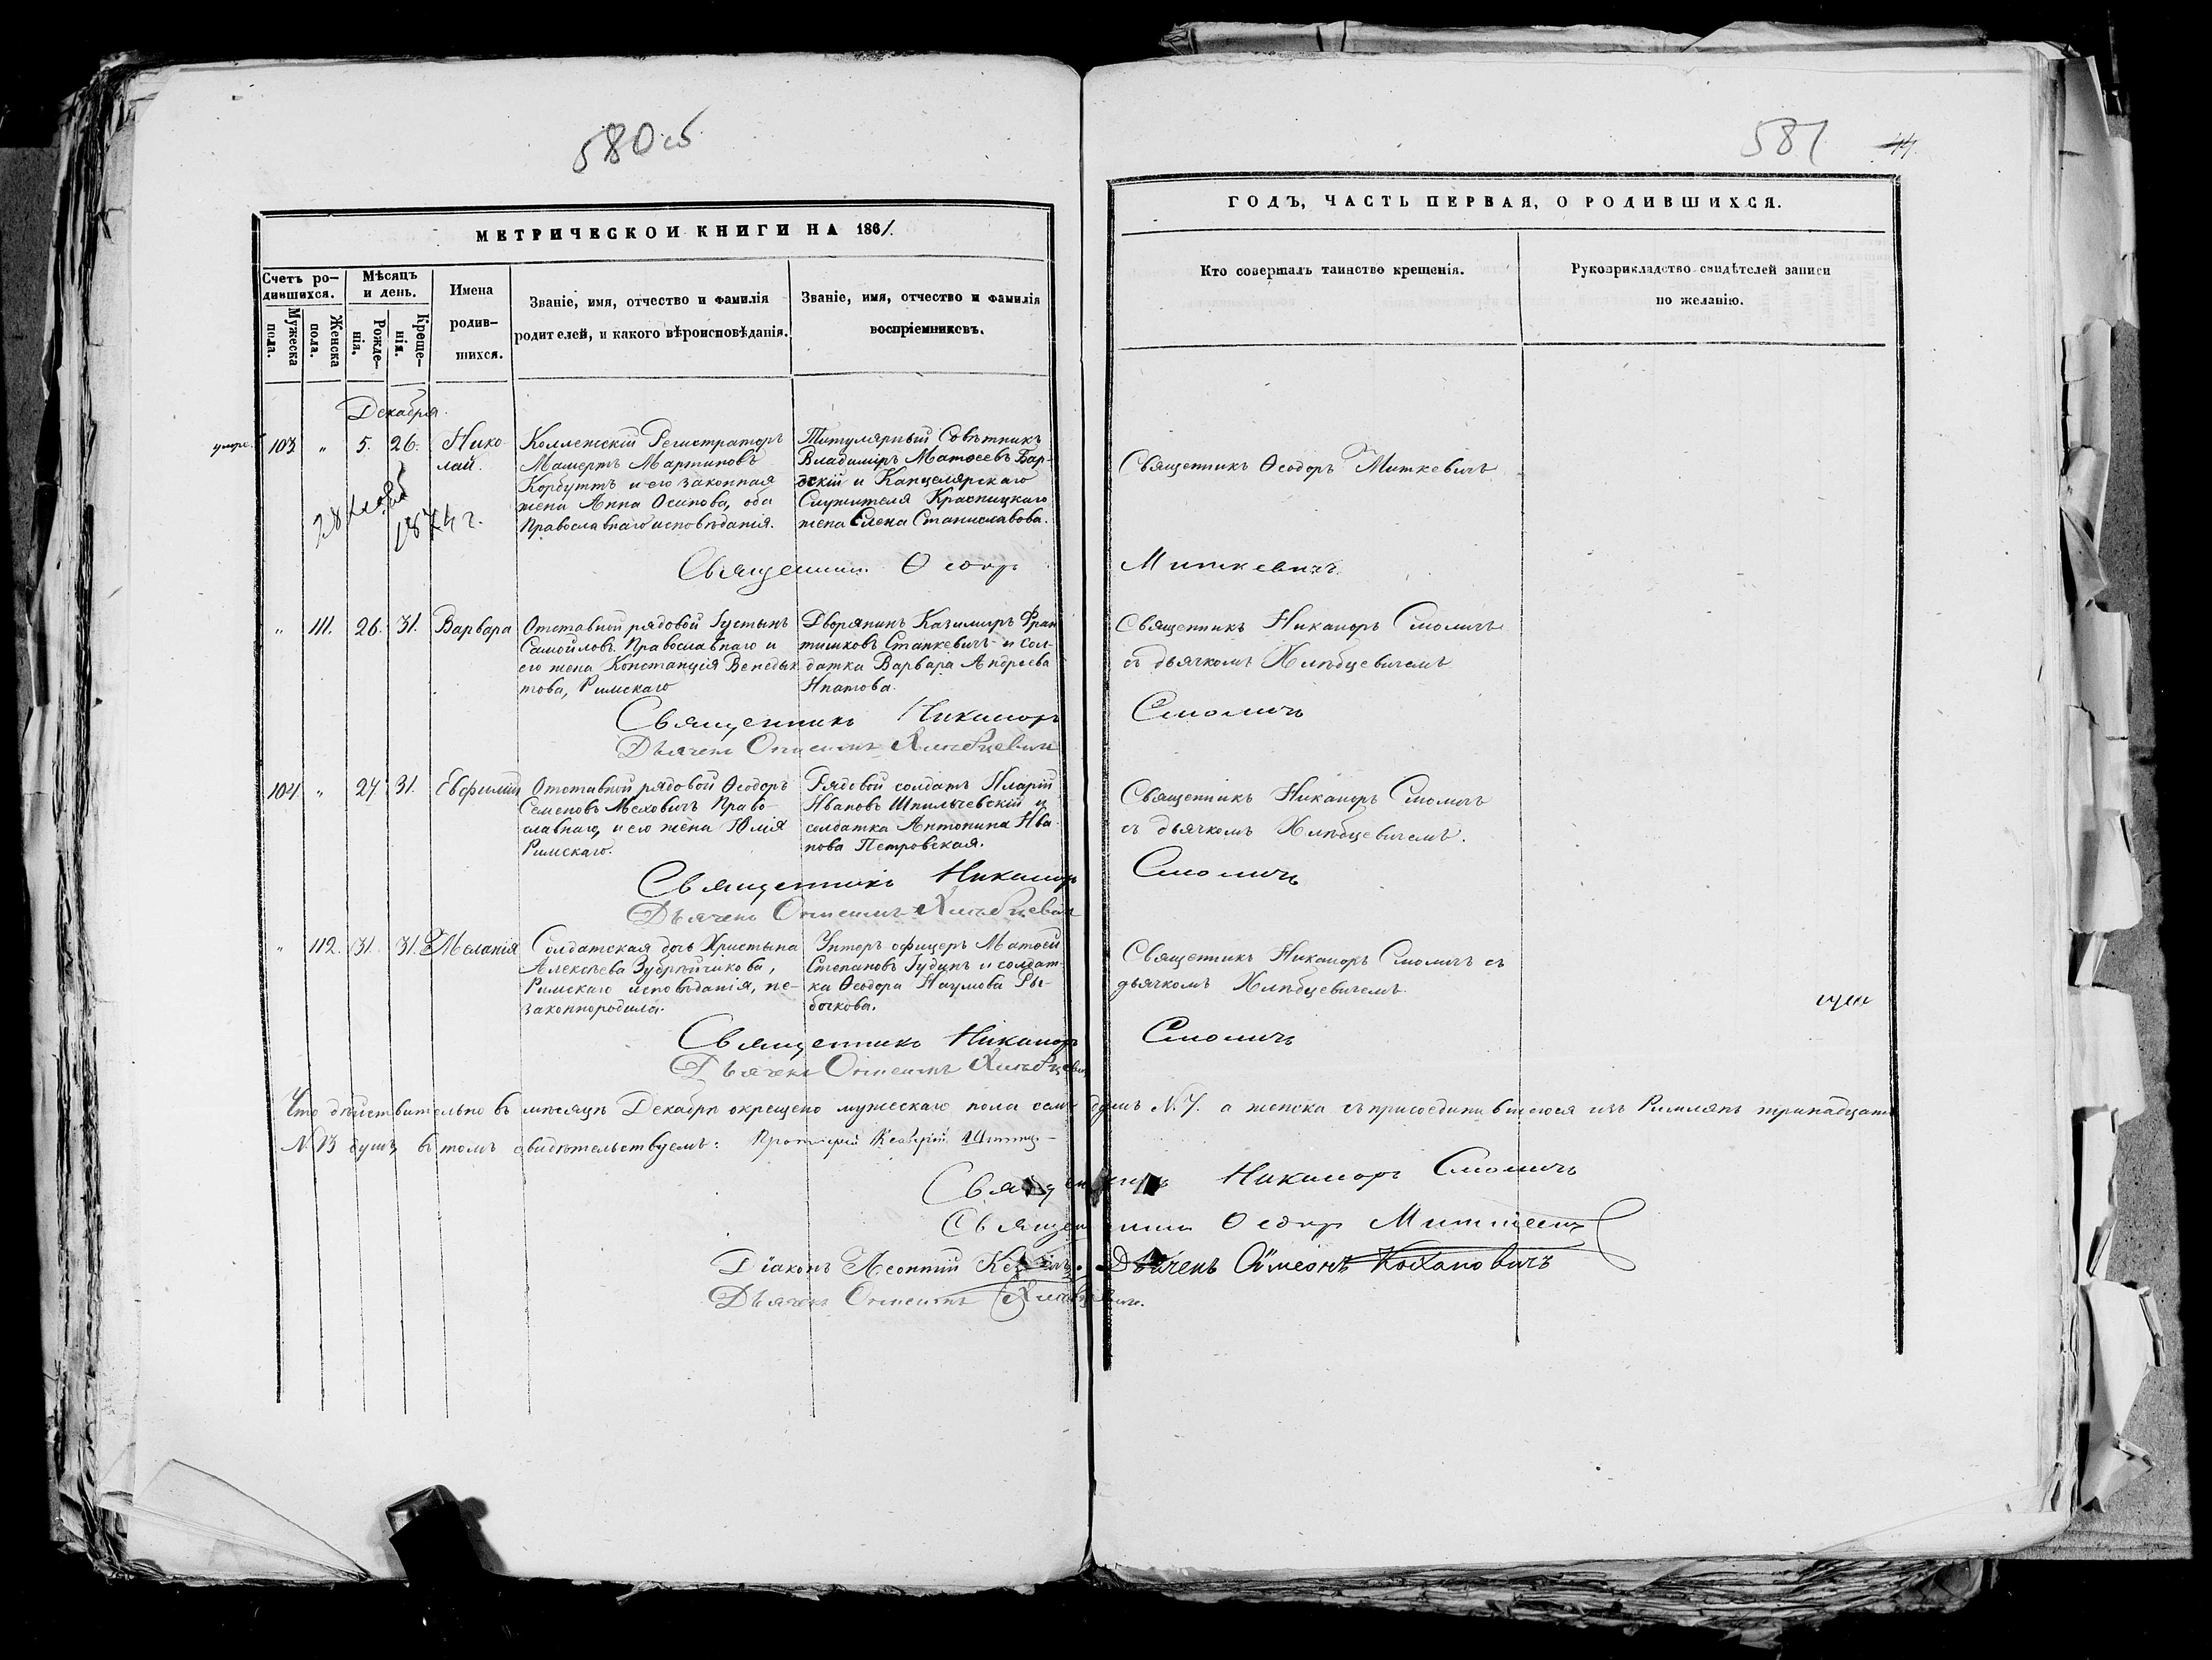 580 об
581
44
МЕТРИЧЕСКОЙ КНИГИ НА 1861
ГОДЪ, ЧАСТЬ ПЕРВАЯ, О РОДИВШИХСЯ.
Счетъ ро-
дившихся.
Мѣсяцъ
и день.
Мужеска
пола.
Женска
пола.
Рожде-
нія.
Креще-
нія.
Имена
родив-
шихся.
Званіе, имя, отчество и фамилія
родителей, и какого вѣроисповѣданія.
Званіе, имя, отчество и фамилія
воспріемниковъ.
Кто совершалъ таинство крещенія.
Рукоприкладство свидѣтелей записи
по желанію.
Декабря
103 " 5. 26. Нико-
лай.
28
1874 г.
Коллежскій Регистраторъ
Мамертъ Мартиновъ
Корбуттъ и его законная
жена Анна Осипова, оба
Православнаго исповѣданія.
Титулярный Совѣтникъ
Владиміръ Матѳеевъ Бар-
скій и Канцелярскаго
Служителя Красницкаго
жена Елена Станиславова.
Священникъ Ѳеодоръ Миткевичъ
Священникъ Ѳеодоръ Миткевичъ
" 111. 26. 31. Варвара
Отставной рядовой Іустинъ
Самойловъ Православнаго и
его жена Констанція Венедик
това, Римскаго
Дворянинъ Казимиръ Фран
тишковъ Станкевичъ и сол-
датка Варвара Андреева
Ипатова.
Священникъ Никаноръ Смоличъ
съ дьячкомъ Хлѣбцевичемъ
Священникъ Никаноръ Смоличъ
Дьячекъ Онисимъ Хлѣбцевичъ
104 " 27 31. Евфимій
Отставной рядовой Ѳеодоръ
Семеновъ Меховичъ Право-
славнаго, и его жена Юлія
Римскаго.
Рядовой солдатъ Иларій
Ивановъ Шпильчевскій и
солдатка Антонина Ива
нова Петровская.
Священникъ Никаноръ Смоличъ
съ дьячкомъ Хлѣбцевичемъ.
Священникъ Никаноръ Смоличъ
Дьячекъ Онисимъ Хлѣбцевичъ
" 112. 31. 31. Меланія
Солдатская дочь Христина
Алексѣева Зубрейчикова,
Римскаго исповѣданія, не-
законнородила.
Унтеръ офицеръ Матѳей
Степановъ Гудинъ и солдат-
ка Ѳеодора Наумова Ры-
бакова.
Священникъ Никаноръ Смоличъ съ
дьячкомъ Хлѣбцевичемъ.
Священникъ Никаноръ Смоличъ
Дьячекъ Онисимъ Хлѣбцевичъ
Что дѣйствительно въ мѣсяцѣ Декабрѣ окрещено мужескаго пола семь душъ N. 7. а женска съ присоединившеюся изъ Римлянъ тринадцать
N. 13 душъ, въ томъ свидѣтельствуемъ:
Священникъ Никаноръ Смоличъ
Священникъ Ѳеодоръ Миткевичъ
Діаконъ Леонтій
Дьячекъ Сѵмеонъ Кохановичъ
Дьячекъ Онисимъ Хлѣбцевичъ.